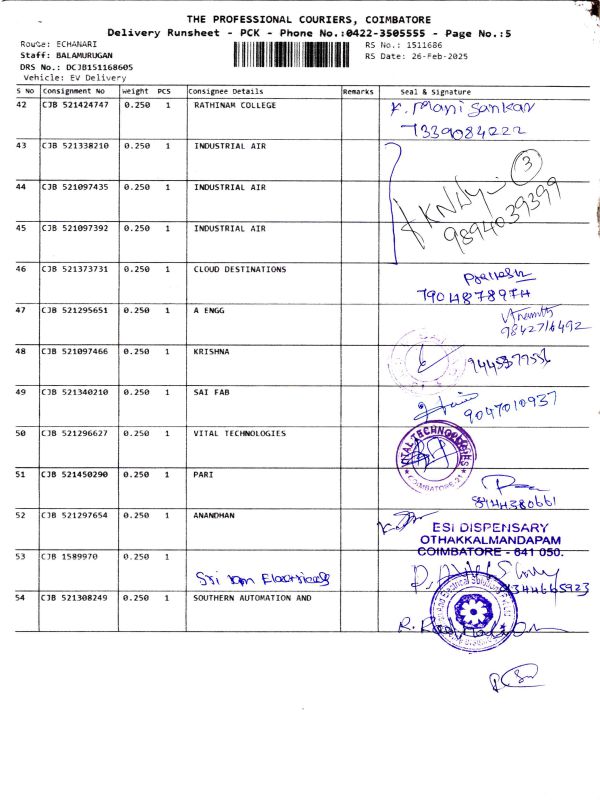 THE PROFESSIONAL COURIERS, COIMBATORE
Delivery Runsheet - PCK - Phone No.:0422-3505555 - Page No.:5
Route: ECHANARI
RS No.: 1511686
Staff: BALAMURUGAN
RS Date: 26-Feb-2025
DRS No.: DCJB151168605
Vehicle: EV Delivery
S No Consignment No Weight PCS Consignee Details Remarks Seal & Signature
42 CJB 521424747 0.250 1 RATHINAM COLLEGE K. Mani Sankar
7339084222
43 CJB 521338210 0.250 1 INDUSTRIAL AIR
3
44 CJB 521097435 0.250 1 INDUSTRIAL AIR
9894039399
45 CJB 521097392 0.250 1 INDUSTRIAL AIR
46 CJB 521373731 0.250 1 CLOUD DESTINATIONS
7904878974
47 CJB 521295651 0.250 1 A ENGG
9842716492
48 CJB 521097466 0.250 1 KRISHNA
49 CJB 521340210 0.250 1 SAI FAB
9047010937
50 CJB 521296627 0.250 1 VITAL TECHNOLOGIES
VITAL TECHNOLOGIES
COIMBATORE-21
51 CJB 521450290 0.250 1 PARI
8144380661
52 CJB 521297654 0.250 1 ANANDHAN
ESI DISPENSARY
OTHAKKALMANDAPAM
COIMBATORE - 641 050.
53 CJB 1589970 0.250 1
Sri ram Electricals
54 CJB 521308249 0.250 1 SOUTHERN AUTOMATION AND